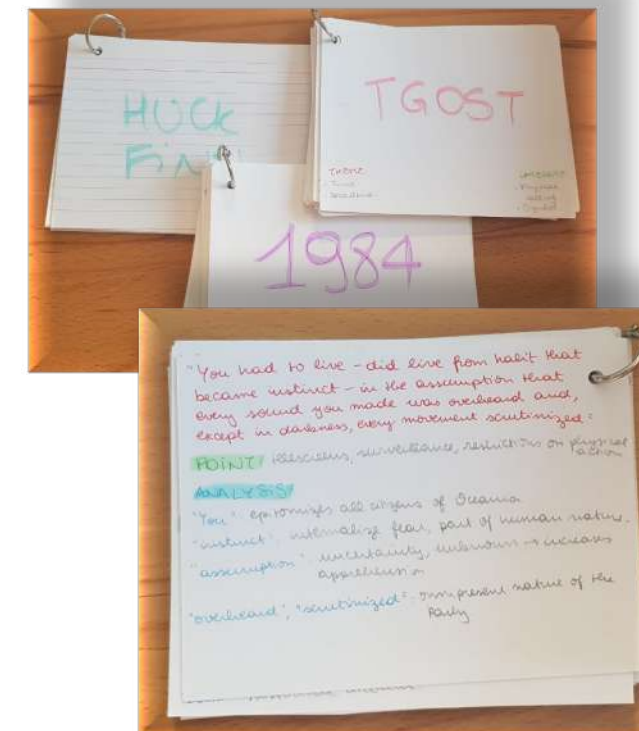 HUCK
FINN
TGOST
THEME
1984
"You had to live - did live from habit that
became instinct - in the assumption that
every sound you made was overheard and,
except in darkness, every movement scrutinized"
POINT/ telescreens, surveillance, restrictions on physical
action
ANALYSIS/
"You": epitomizes all citizens of Oceania
"instinct": internalize fear, part of human nature.
"assumption": uncertainty, unknown → increases
apprehension
"overheard", "scrutinized": omnipresent nature of the
Party